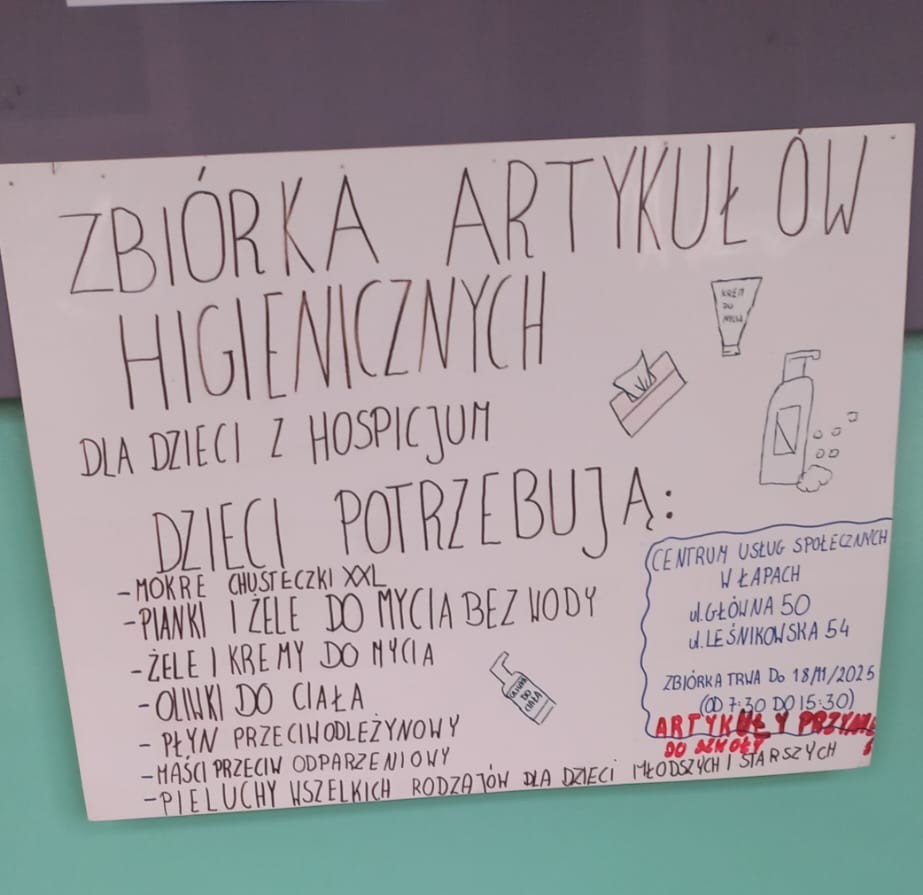 ZBIÓRKA ARTYKUŁÓW
HIGIENICZNYCH
DLA DZIECI Z HOSPICJUM
DZIECI POTRZEBUJĄ:
-MOKRE CHUSTECZKI XXL
-PIANKI I ŻELE DO MYCIA BEZ WODY
-ŻELE I KREMY DO MYCIA
-OLIWKI DO CIAŁA
- PŁYN PRZECIWODLEŻYNOWY
-MAŚCI PRZECIW ODPARZENIOWY
-PIELUCHY WSZELKICH RODZAJÓW DLA DZIECI MŁODSZYCH I STARSZYCH
KREM
DO
MYCIA
DO
CIAŁA
CENTRUM USŁUG SPOŁECZNYCH
W ŁAPACH
ul.GŁÓWNA 50
ul.LEŚNIKOWSKA 54
ZBIÓRKA TRWA DO 18/11/2025
(OD 7:30 DO 15:30)
ARTYKUŁY
DO SZKOŁY